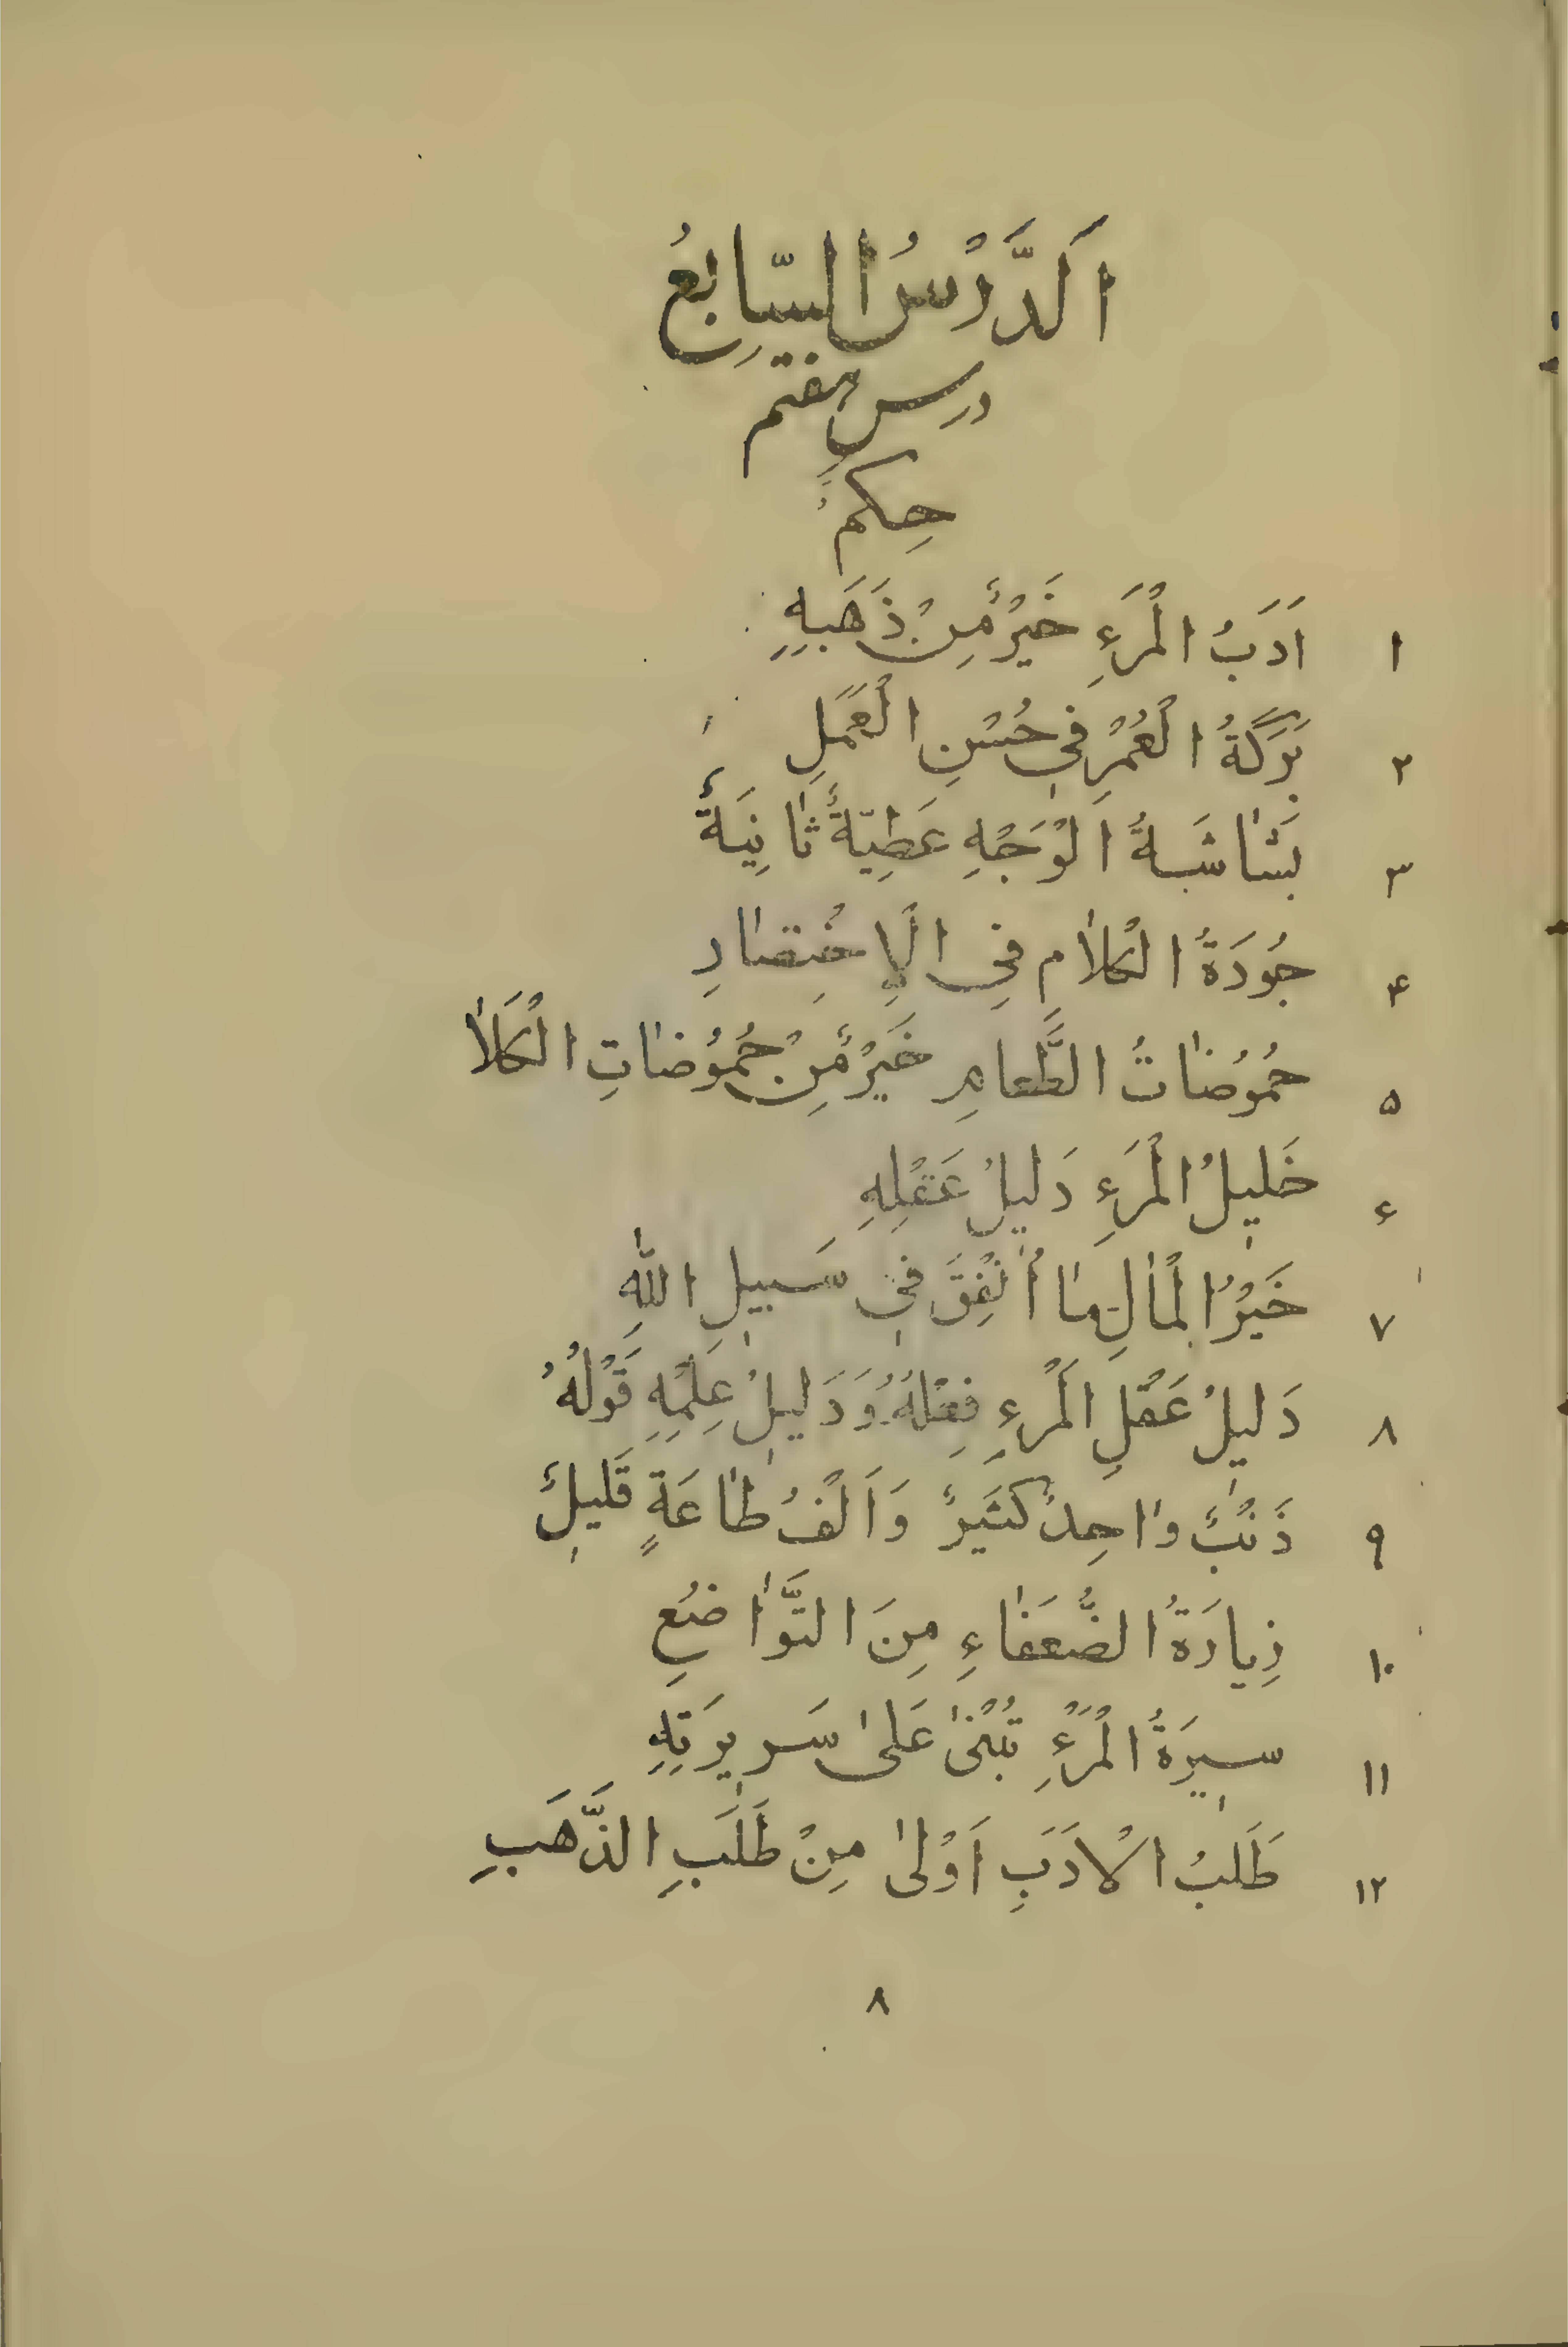 اَلدَّرْسُ السّابِعُ
درس هفتم
حِکَمٌ
١ اَدَبُ الْمَرْءِ خَيْرٌ مِنْ ذَهَبِهِ
٢ بَرَكَةُ الْعُمْرِ فِي حُسْنِ الْعَمَلِ
٣ بَشاشَةُ الْوَجْهِ عَطِيَّةٌ ثانِيَةٌ
۴ جُودَةُ الْكَلامِ فِي الْاِخْتِصارِ
۵ حُمُوضاتُ الطَّعامِ خَيْرٌ مِنْ حُمُوضاتِ الْكَلا
۶ خَليلُ الْمَرْءِ دَليلُ عَقْلِهِ
٧ خَيْرُ الْمالِ ما اُنْفِقَ في سَبيلِ اللهِ
٨ دَليلُ عَقْلِ الْمَرْءِ فِعْلُهُ وَ دَليلُ عِلْمِهِ قَوْلُهُ
٩ ذَنْبٌ واحِدٌ كَثيرٌ وَ اَلْفُ طاعَةٍ قَليلٌ
١٠ زِيارَةُ الضُّعَفاءِ مِنَ التَّواضُعِ
١١ سيرَةُ الْمَرْءِ تُبْنىٰ عَلىٰ سَريرَتِهِ
١٢ طَلَبُ الْاَدَبِ اَوْلىٰ مِنْ طَلَبِ الذَّهَبِ
٨